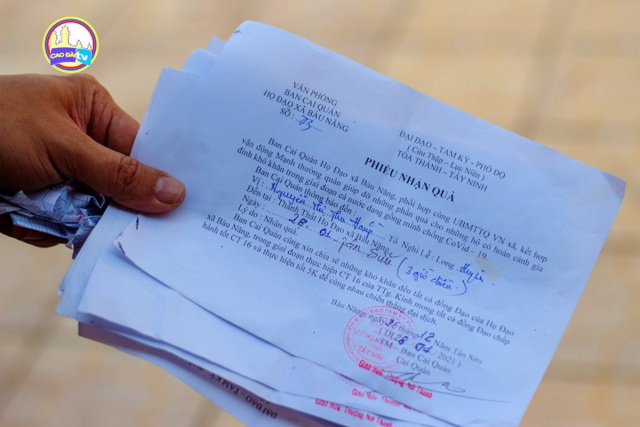 CAO ĐÀI TV
VĂN PHÒNG
BAN CAI QUẢN
HỌ ĐẠO XÃ BÀU NĂNG
SỐ 73
ĐẠI ĐẠO – TAM KỲ – PHỔ ĐỘ
( Cửu Thập – Lục Niên )
TÒA THÁNH – TÂY NINH
PHIẾU NHẬN QUÀ
Ban Cai Quản Họ Đạo xã Bàu Năng, phối hợp cùng UBMTTQ VN xã, kết hợp
vận động Mạnh thường quân giúp đỡ những phần quà cho những hộ có hoàn cảnh gia
đình khó khăn trong giai đoạn cả nước đang gồng mình chống CoVid – 19.
Ban Cai Quản thông báo đến
Vị : Nguyễn Thị – Tô Nghi Lễ : Long
Đến tại : Thánh Thất Họ Đạo xã Bàu Năng
Ngày : 28. 6 Tân Sửu ( 3 giờ chiều )
Lý do : Nhận quà
Ban Cai Quản cũng xin chia sẽ những khó khăn đến tất cả đồng Đạo của Họ Đạo
xã Bàu Năng, trong giai đoạn thực hiện CT 16 của TTg. Kính mong tất cả đồng Đạo chấp
hành tốt CT 16 và thực hiện tốt 5K để cùng nhau chiến thắng đại dịch.
Bàu Năng, ngày 26 tháng 12 Năm Tân Sửu
( DL 2021 )
TM Ban Cai Quản
Cai Quản
Giáo Hữu Thượng Nơi Thanh
Giáo Hữu Thượng
Giáo Hữu Thượng Nơi Thanh
ĐẠI ĐẠO – TAM KỲ